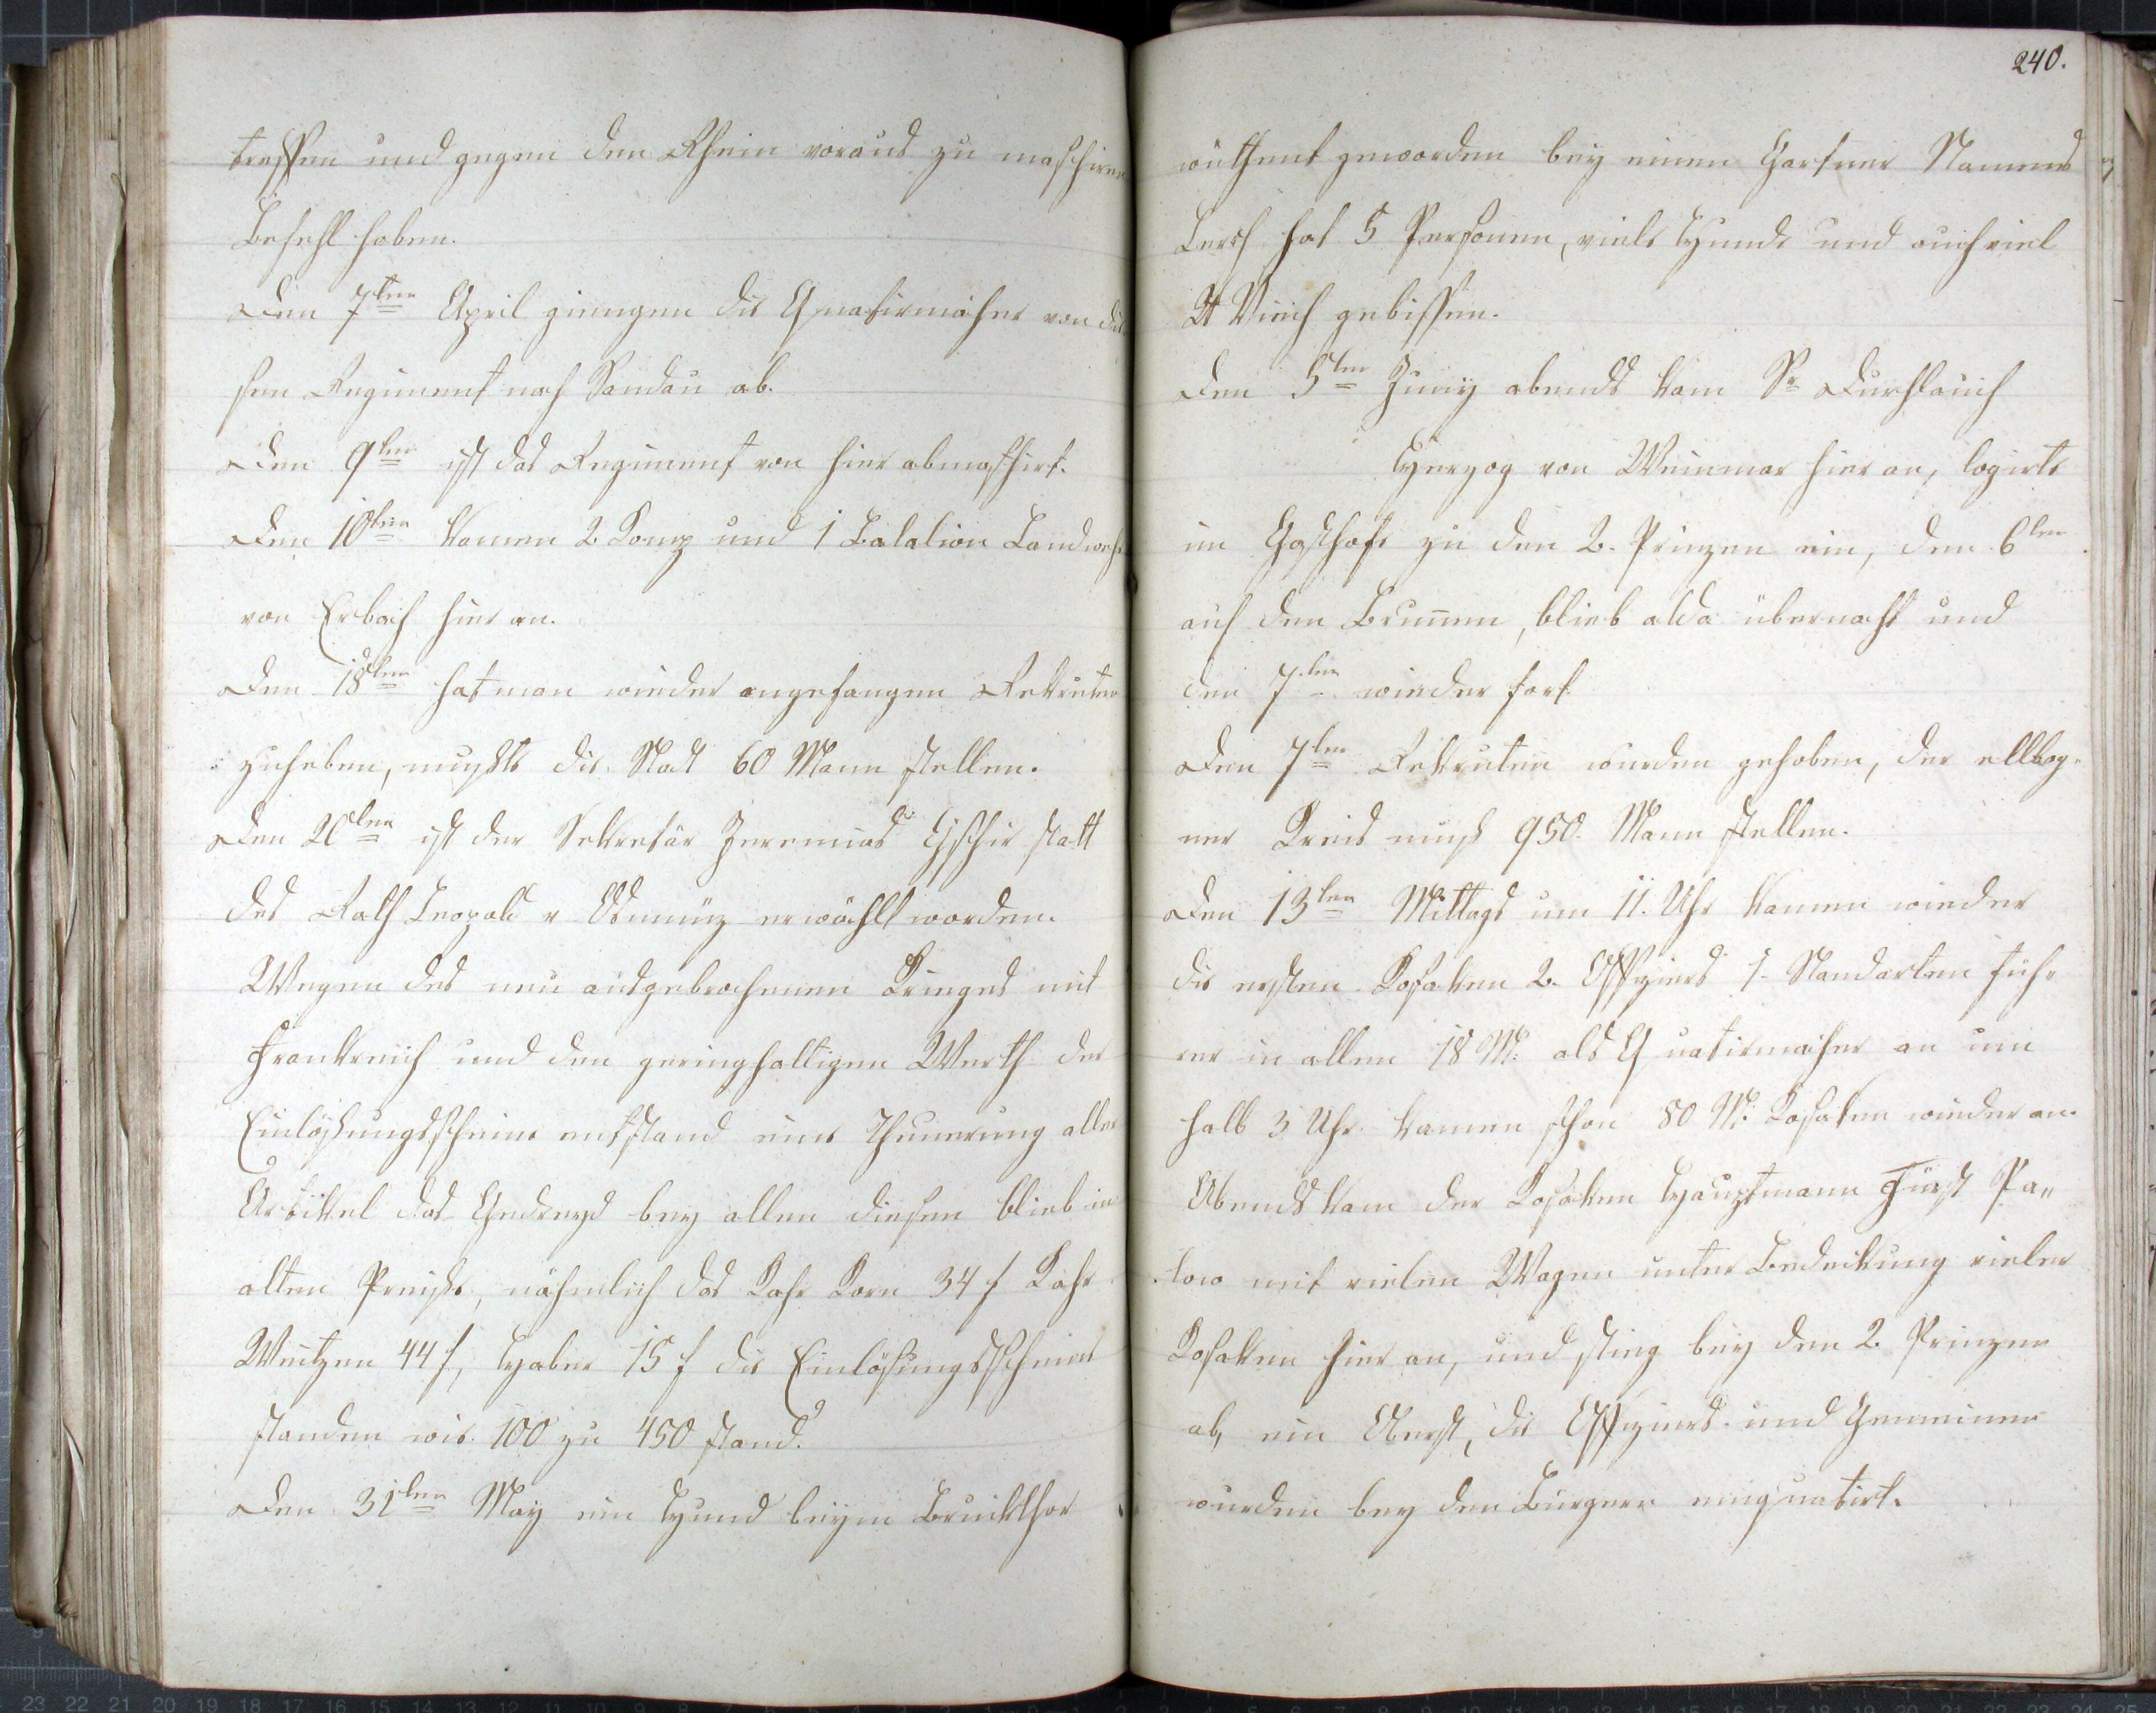 treffen und gegen den Rhein voraus zu maschiren
Befehl haben.
Den 7ten April giengen die Quatirmacher von die
sen Regiment nach Sandau ab.
Den 9ten ist das Regiment von hier abmaschirt.
Den 10ten kamen 2 Comp und 1 Batalion Landwehr
von Erbach hier an.
Den 18ten hat man wieder angefangen Rekruten
zuheben, mußte die Stadt 60 Mann stellen.
Den 20ten ist der Sekretär Jeremias Gschir statt
des Rath Leopold v Ottmüz erwählt worden.
Wegen des neu ausgebrochenen Krieges mit
Frankreich und den geringhaltigen Werth der
Einlößungsscheine entstand eine Theuerung aller
Artikel das Gedreyd bey allen diesen blieb in
alten Preiße, nähmlich das Kahr Korn 34 f Kahr
Weitzen 44 f, Haber 15 f die Einlösungsscheine
standen wie 100 zu 450 stand.
Den 31ten May ein Hund beym Bruckthor
240.
wüthent geworden bey einen Gartner Namens
Lerch hat 5 Personen, viele Hunde und auch viel
Vieh gebissen.
Den 5ten Juny abends kam Se Durchlauch
Herzog von Weinmar hier an, logirte
im Gasthofe zu den 2. Prinzen ein, den 6ten
auf den Brunnen, blieb alda übernacht und
den 7ten wieder fort
Den 7ten Rekruten wurden gehoben, der ellbog-
ner Kreis muß 950. Mann stellen.
Den 13ten Mittags um 11. Uhr kamen wieder
die ersten Kosaken 2. Offiziers 1. Standarten füh-
rer in allen 18 M: als Quatirmacher an um
halb 3 Uhr kamen schon 80 M: Kosaken wieder an.
Abends kam der Kosaken Hauptmann Fürst Pa-
low mit vielen Wagen unter Bedeckung vieler
Kosaken hier an, und stieg bey den 2 Prinzen
ab, ein Oberst, die Offiziers und Gemeinen
wurden bey den Bürgern einquatirt.